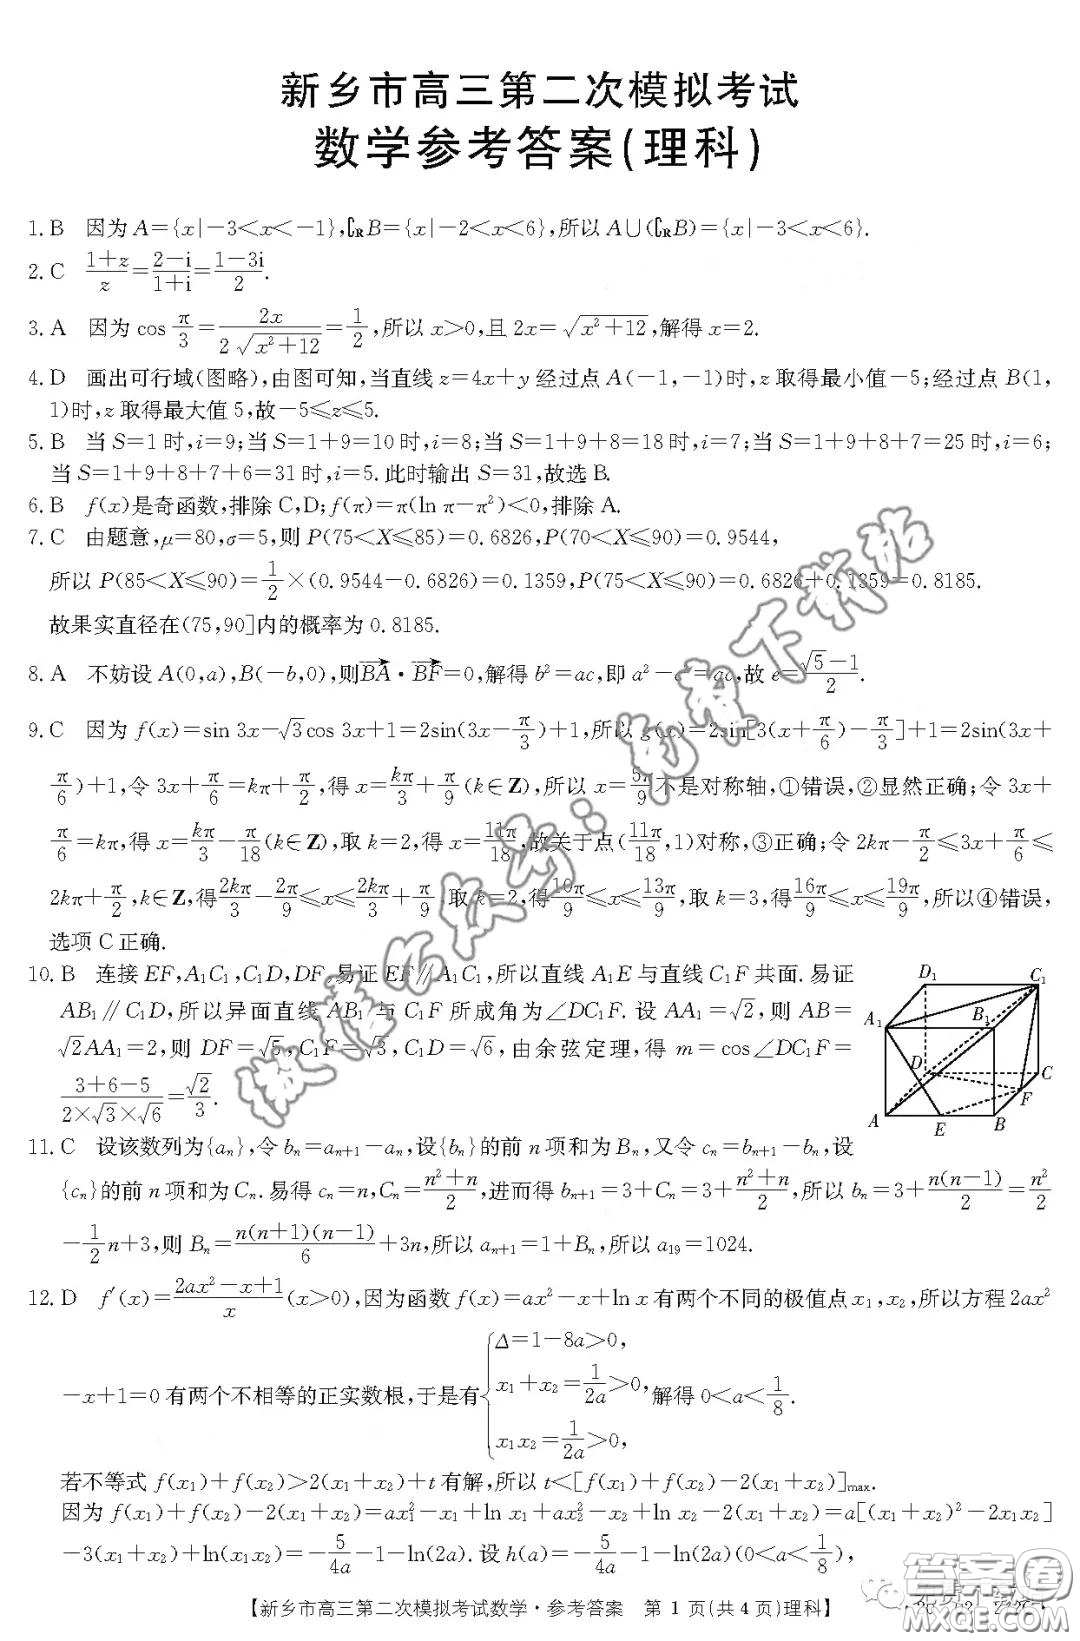 新乡市高三第二次模拟考试
数学参考答案(理科)
1. B 因为 A={x|-3<x<-1},∁RB={x|-2<x<6},所以 A∪(∁RB)={x|-3<x<6}.
2. C (1+z)/z=(2-i)/(1+i)=(1-3i)/2.
3. A 因为 cos π/3=2x/(2√(x²+12))=1/2,所以 x>0,且 2x=√(x²+12),解得 x=2.
4. D 画出可行域(图略),由图可知,当直线 z=4x+y 经过点 A(-1,-1)时,z 取得最小值-5;经过点 B(1,
1)时,z 取得最大值 5,故-5≤z≤5.
5. B 当 S=1 时,i=9;当 S=1+9=10 时,i=8;当 S=1+9+8=18 时,i=7;当 S=1+9+8+7=25 时,i=6;
当 S=1+9+8+7+6=31 时,i=5. 此时输出 S=31,故选 B.
6. B f(x)是奇函数,排除 C,D;f(π)=π(ln π-π²)<0,排除 A.
7. C 由题意,μ=80,σ=5,则 P(75<X≤85)=0.6826,P(70<X≤90)=0.9544,
所以 P(85<X≤90)=1/2×(0.9544-0.6826)=0.1359,P(75<X≤90)=0.6826+0.1359=0.8185.
故果实直径在(75,90]内的概率为 0.8185.
8. A 不妨设 A(0,a),B(-b,0),则BA·BF=0,解得 b²=ac,即 a²-c²=ac,故 e=(√5-1)/2.
9. C 因为 f(x)=sin 3x-√3cos 3x+1=2sin(3x-π/3)+1,所以 g(x)=2sin[3(x+π/6)-π/3]+1=2sin(3x+
π/6)+1,令 3x+π/6=kπ+π/2,得 x=kπ/3+π/9(k∈Z),所以 x=5π/9不是对称轴,①错误,②显然正确;令 3x+
π/6=kπ,得 x=kπ/3-π/18(k∈Z),取 k=2,得 x=11π/18,故关于点(11π/18,1)对称,③正确;令 2kπ-π/2≤3x+π/6≤
2kπ+π/2,k∈Z,得2kπ/3-2π/9≤x≤2kπ/3+π/9,取 k=2,得10π/9≤x≤13π/9,取 k=3,得16π/9≤x≤19π/9,所以④错误,
选项 C 正确.
10. B 连接 EF,A₁C₁,C₁D,DF,易证 EF∥A₁C₁,所以直线 A₁E 与直线 C₁F 共面. 易证
AB₁∥C₁D,所以异面直线 AB₁ 与 C₁F 所成角为∠DC₁F. 设 AA₁=√2,则 AB=
√2AA₁=2,则 DF=√5,C₁F=√3,C₁D=√6,由余弦定理,得 m=cos∠DC₁F=
(3+6-5)/(2×√3×√6)=√2/3.
D₁ C₁
A₁ B₁
D C
F
A E B
11. C 设该数列为{aₙ},令 bₙ=aₙ₊₁-aₙ,设{bₙ}的前 n 项和为 Bₙ,又令 cₙ=bₙ₊₁-bₙ,设
{cₙ}的前 n 项和为 Cₙ. 易得 cₙ=n,Cₙ=(n²+n)/2,进而得 bₙ₊₁=3+Cₙ=3+(n²+n)/2,所以 bₙ=3+n(n-1)/2=n²/2
-1/2n+3,则 Bₙ=n(n+1)(n-1)/6+3n,所以 aₙ₊₁=1+Bₙ,所以 a₁₉=1024.
12. D f′(x)=(2ax²-x+1)/x(x>0),因为函数 f(x)=ax²-x+ln x 有两个不同的极值点 x₁,x₂,所以方程 2ax²
-x+1=0 有两个不相等的正实数根,于是有{Δ=1-8a>0, x₁+x₂=1/2a>0, x₁x₂=1/2a>0, 解得 0<a<1/8.
若不等式 f(x₁)+f(x₂)>2(x₁+x₂)+t 有解,所以 t<[f(x₁)+f(x₂)-2(x₁+x₂)]max.
因为 f(x₁)+f(x₂)-2(x₁+x₂)=ax₁²-x₁+ln x₁+ax₂²-x₂+ln x₂-2(x₁+x₂)=a[(x₁+x₂)²-2x₁x₂]
-3(x₁+x₂)+ln(x₁x₂)=-5/4a-1-ln(2a). 设 h(a)=-5/4a-1-ln(2a)(0<a<1/8),
【新乡市高三第二次模拟考试数学·参考答案 第 1 页(共 4 页)理科】
答案圈
MXQE.COM